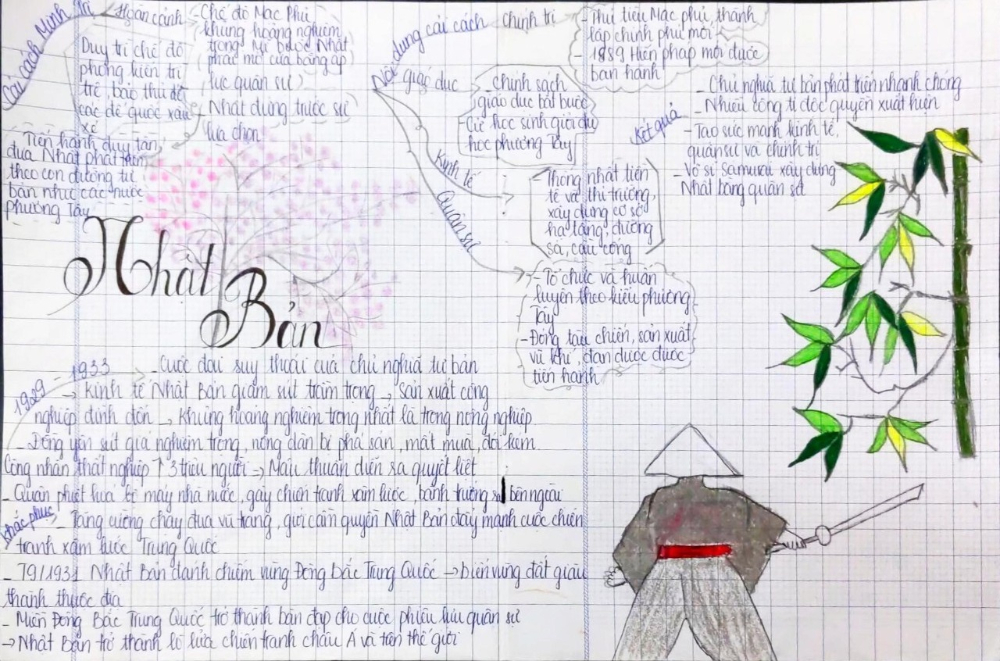 Cải cách Minh Trị
Hoàn cảnh
Chế độ Mạc Phủ
khủng hoảng nghiêm
trọng. Mĩ buộc Nhật
phải mở cửa bằng áp
lực quân sự
Duy trì chế độ
phong kiến trì
trệ, bảo thủ để
các đế quốc xâu
xé
Nhật đứng trước sự
lựa chọn
Tiến hành duy tân,
đưa Nhật phát triển
theo con đường tư
bản như các nước
phương Tây
Nội dung cải cách
Chính trị
- Thủ tiêu Mạc phủ, thành
lập chính phủ mới
- 1889 Hiến pháp mới được
ban hành
giáo dục
- Chính sách
giáo dục bắt buộc
- Cử học sinh giỏi du
học phương Tây
Kinh tế
- Thống nhất tiền
tệ và thị trường,
xây dựng cơ sở
hạ tầng, đường
sá, cầu cống
Quân sự
- Tổ chức và huấn
luyện theo kiểu phương
Tây
- Đóng tàu chiến, sản xuất
vũ khí, đạn dược được
tiến hành
Kết quả
- Chủ nghĩa tư bản phát triển nhanh chóng
- Nhiều công ti độc quyền xuất hiện
- Tạo sức mạnh kinh tế,
quân sự và chính trị
- Võ sĩ Samurai xây dựng
Nhật bằng quân sự
Nhật
Bản
1929 - 1933
- Cuộc đại suy thoái của chủ nghĩa tư bản
→ Kinh tế Nhật Bản giảm sút trầm trọng → Sản xuất công
nghiệp đình đốn → Khủng hoảng nghiêm trọng nhất là trong nông nghiệp
- Đồng yên sụt giá nghiêm trọng, nông dân bị phá sản, mất mùa, đói kém
Công nhân thất nghiệp ↑ 3 triệu người → Mâu thuẫn diễn ra quyết liệt
- Quân phiệt hóa bộ máy nhà nước, gây chiến tranh xâm lược, bành trướng ra bên ngoài
Khắc phục
- Tăng cường chạy đua vũ trang, giới cầm quyền Nhật Bản đẩy mạnh cuộc chiến
tranh xâm lược Trung Quốc
- T9/1931 Nhật Bản đánh chiếm vùng Đông Bắc Trung Quốc → biến vùng đất giàu
thành thuộc địa
- Miền Đông Bắc Trung Quốc trở thành bàn đạp cho cuộc phiêu lưu quân sự
→ Nhật Bản trở thành lò lửa chiến tranh châu Á và trên thế giới